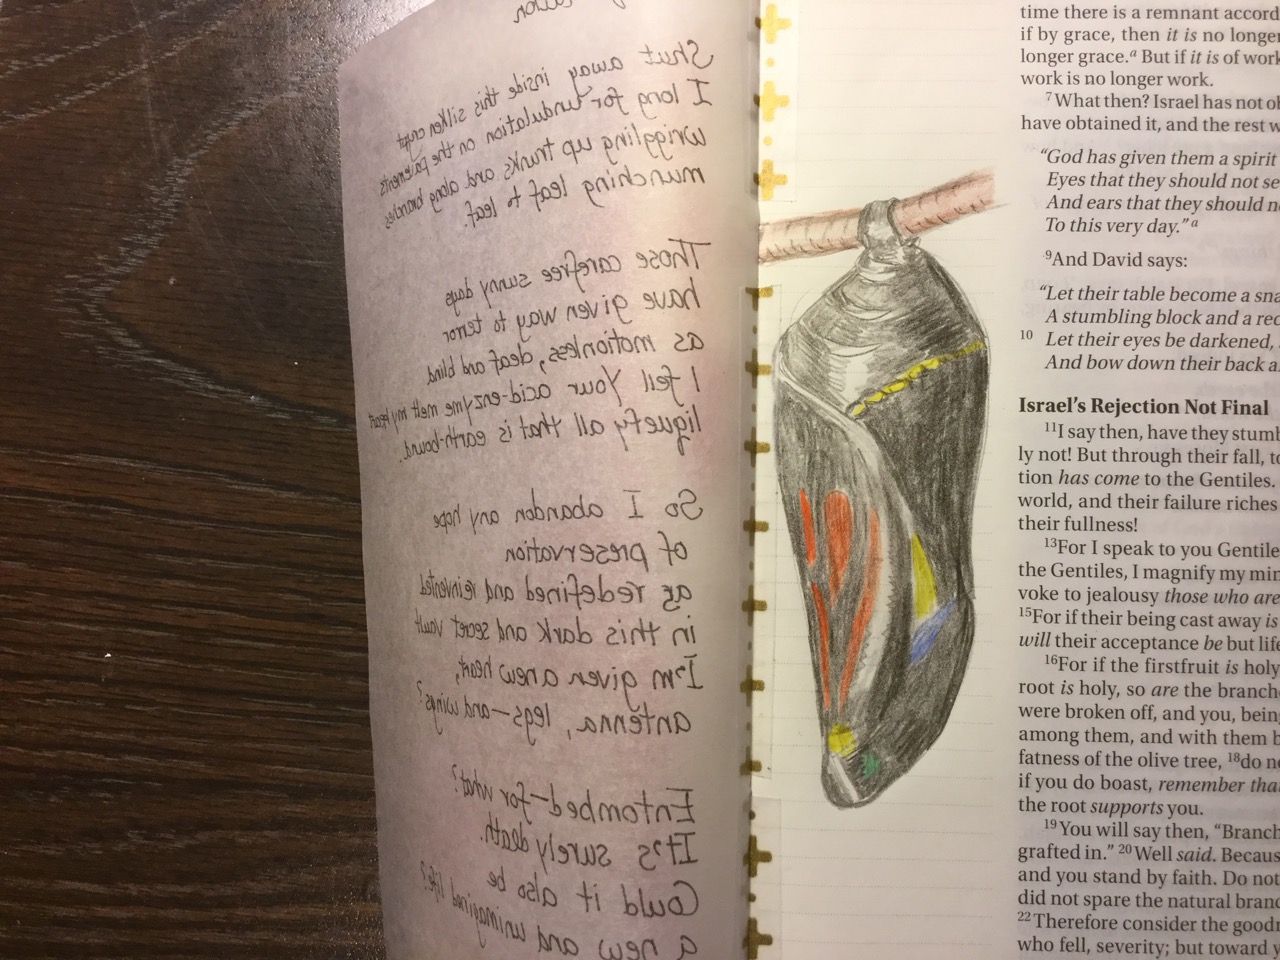 Shut away inside this silken crypt
I long for undulation on the pavements
wriggling up trunks and along branches
munching leaf to leaf.
Those carefree sunny days
have given way to terror
as motionless, deaf and blind
I fell Your acid-enzyme melt my heart
liquefy all that is earth-bound.
So I abandon any hope
of preservation
as redefined and reinvented
in this dark and secret vault
I'm given a new heart,
antenna, legs—and wings?
Entombed—for what?
It's surely death.
Could it also be
a new and unimagined life?
time there is a remnant accord
if by grace, then it is no longer
longer grace.a But if it is of work
work is no longer work.
7What then? Israel has not ob
have obtained it, and the rest w
“God has given them a spirit
Eyes that they should not se
And ears that they should n
To this very day.” a
9And David says:
“Let their table become a sna
A stumbling block and a rec
10 Let their eyes be darkened,
And bow down their back a
Israel’s Rejection Not Final
11I say then, have they stumb
ly not! But through their fall, to
tion has come to the Gentiles.
world, and their failure riches
their fullness!
13For I speak to you Gentile
the Gentiles, I magnify my min
voke to jealousy those who are
15For if their being cast away is
will their acceptance be but life
16For if the firstfruit is holy
root is holy, so are the branche
were broken off, and you, being
among them, and with them b
fatness of the olive tree, 18do no
if you do boast, remember that
the root supports you.
19You will say then, “Branch
grafted in.” 20Well said. Becaus
and you stand by faith. Do not
did not spare the natural branc
22Therefore consider the goodn
who fell, severity; but toward y